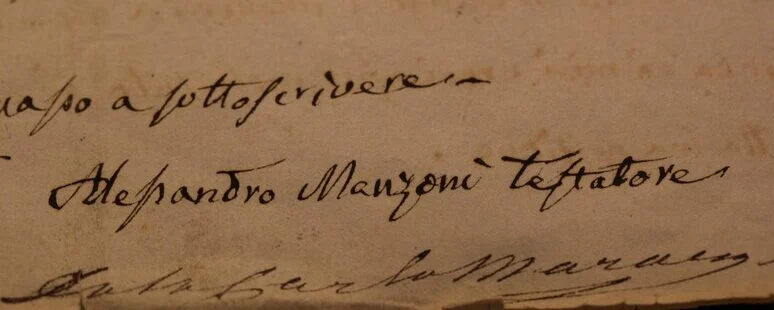 passo a sottoscrivere.—
Alessandro Manzoni testatore
Carlo